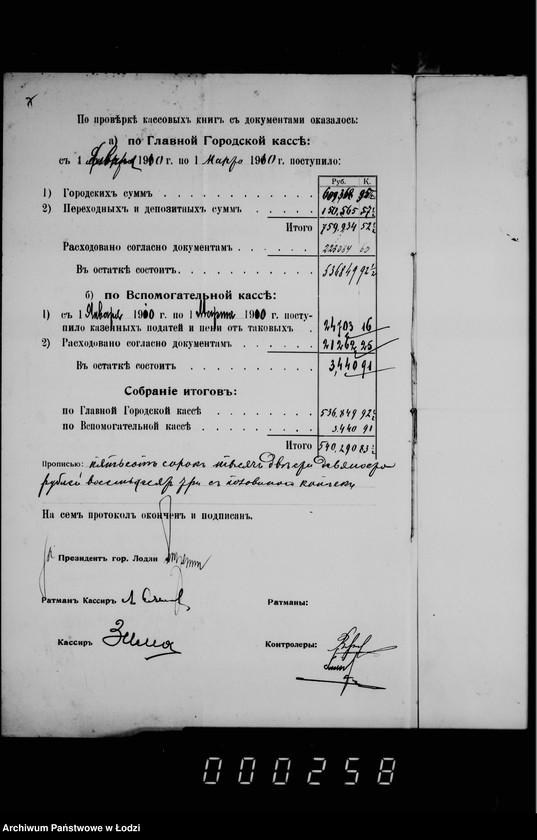 По провѣркѣ кассовых книг съ документами оказалось:
а) по Главной Городской кассѣ:
съ 1 1910 г. по 1 Марта 1910 г. поступило:
Руб. К.
1) Городскихъ суммъ
2) Переходныхъ и депозитныхъ суммъ 150,565 57½
Итого 759,934 52½
Расходовано согласно документамъ
Въ остаткѣ состоитъ 536849 92½
б) по Вспомогательной кассѣ:
1) съ 1 Января 1910 г. по 1 Марта 1910 г. посту-
пило казенныхъ податей и пени отъ таковыхъ 24703 16
2) Расходовано согласно документамъ 21262 25
Въ остаткѣ состоитъ 3,440 91
Собраніе итоговъ:
по Главной Городской кассѣ 536,849 92½
по Вспомогательной кассѣ 3440 91
Итого 540,290 83½
Прописью: пятьсотъ сорокъ тысячъ двѣсти девяносто
рублей восемьдесятъ три съ половиною копѣекъ
На семъ протоколъ оконченъ и подписанъ.
Президентъ гор. Лодзи
Ратманъ Кассиръ
Ратманы:
Кассиръ Зима
Контролеры:
000258
Archiwum Państwowe w Łodzi